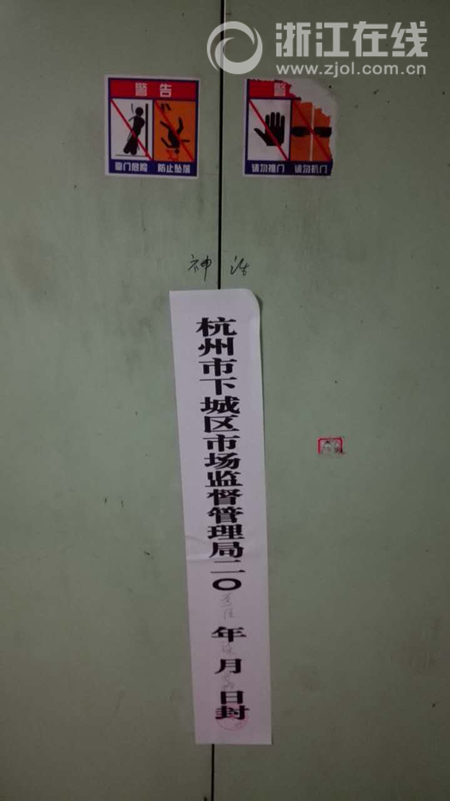 浙江在线
www.zjol.com.cn
警告
靠门危险 防止坠落
警
请勿推门 请勿扒门
神
杭州市下城区市场监督管理局二〇 年 月 日封